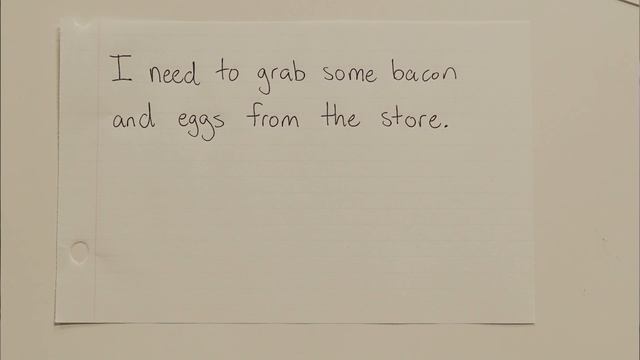 I need to grab some bacon
and eggs from the store.